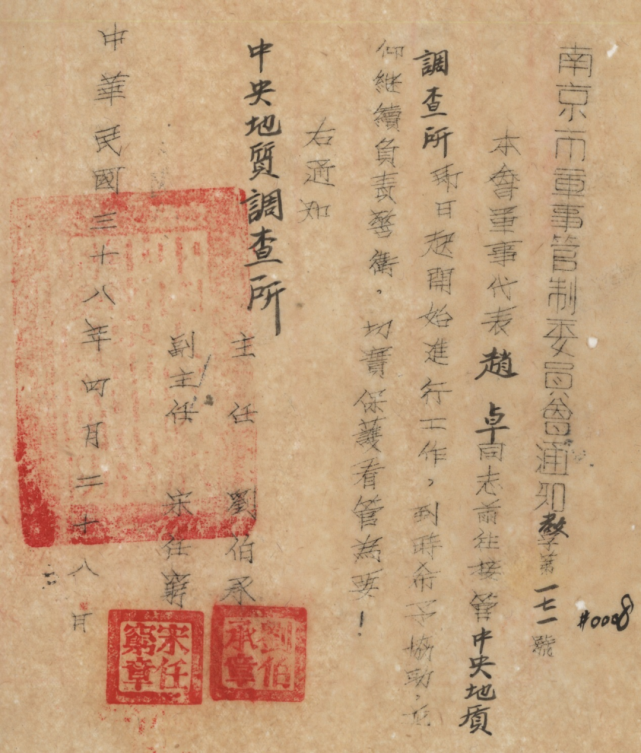 南京市軍事管制委員會通知教字第一七一號
本會軍事代表趙卓同志前往接管中央地質
調查所，即日起開始進行工作，到時希予協助，並
仰繼續負責警衛，切實保護看管為要！
右通知
中央地質調查所
主任　劉伯承
劉伯承章
副主任　宋任窮
宋任窮章
中華民國三十八年四月二十八日
#0008